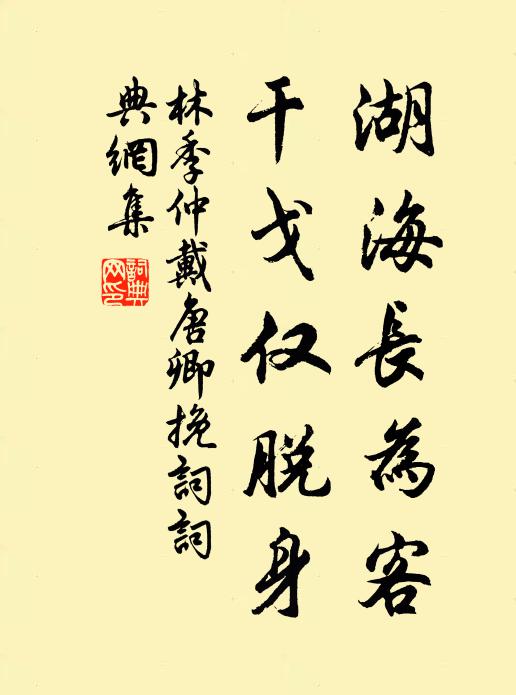 湖海長為客
干戈仅脫身
林季仲戴唐卿挽詞詞
典網集
詞典网印